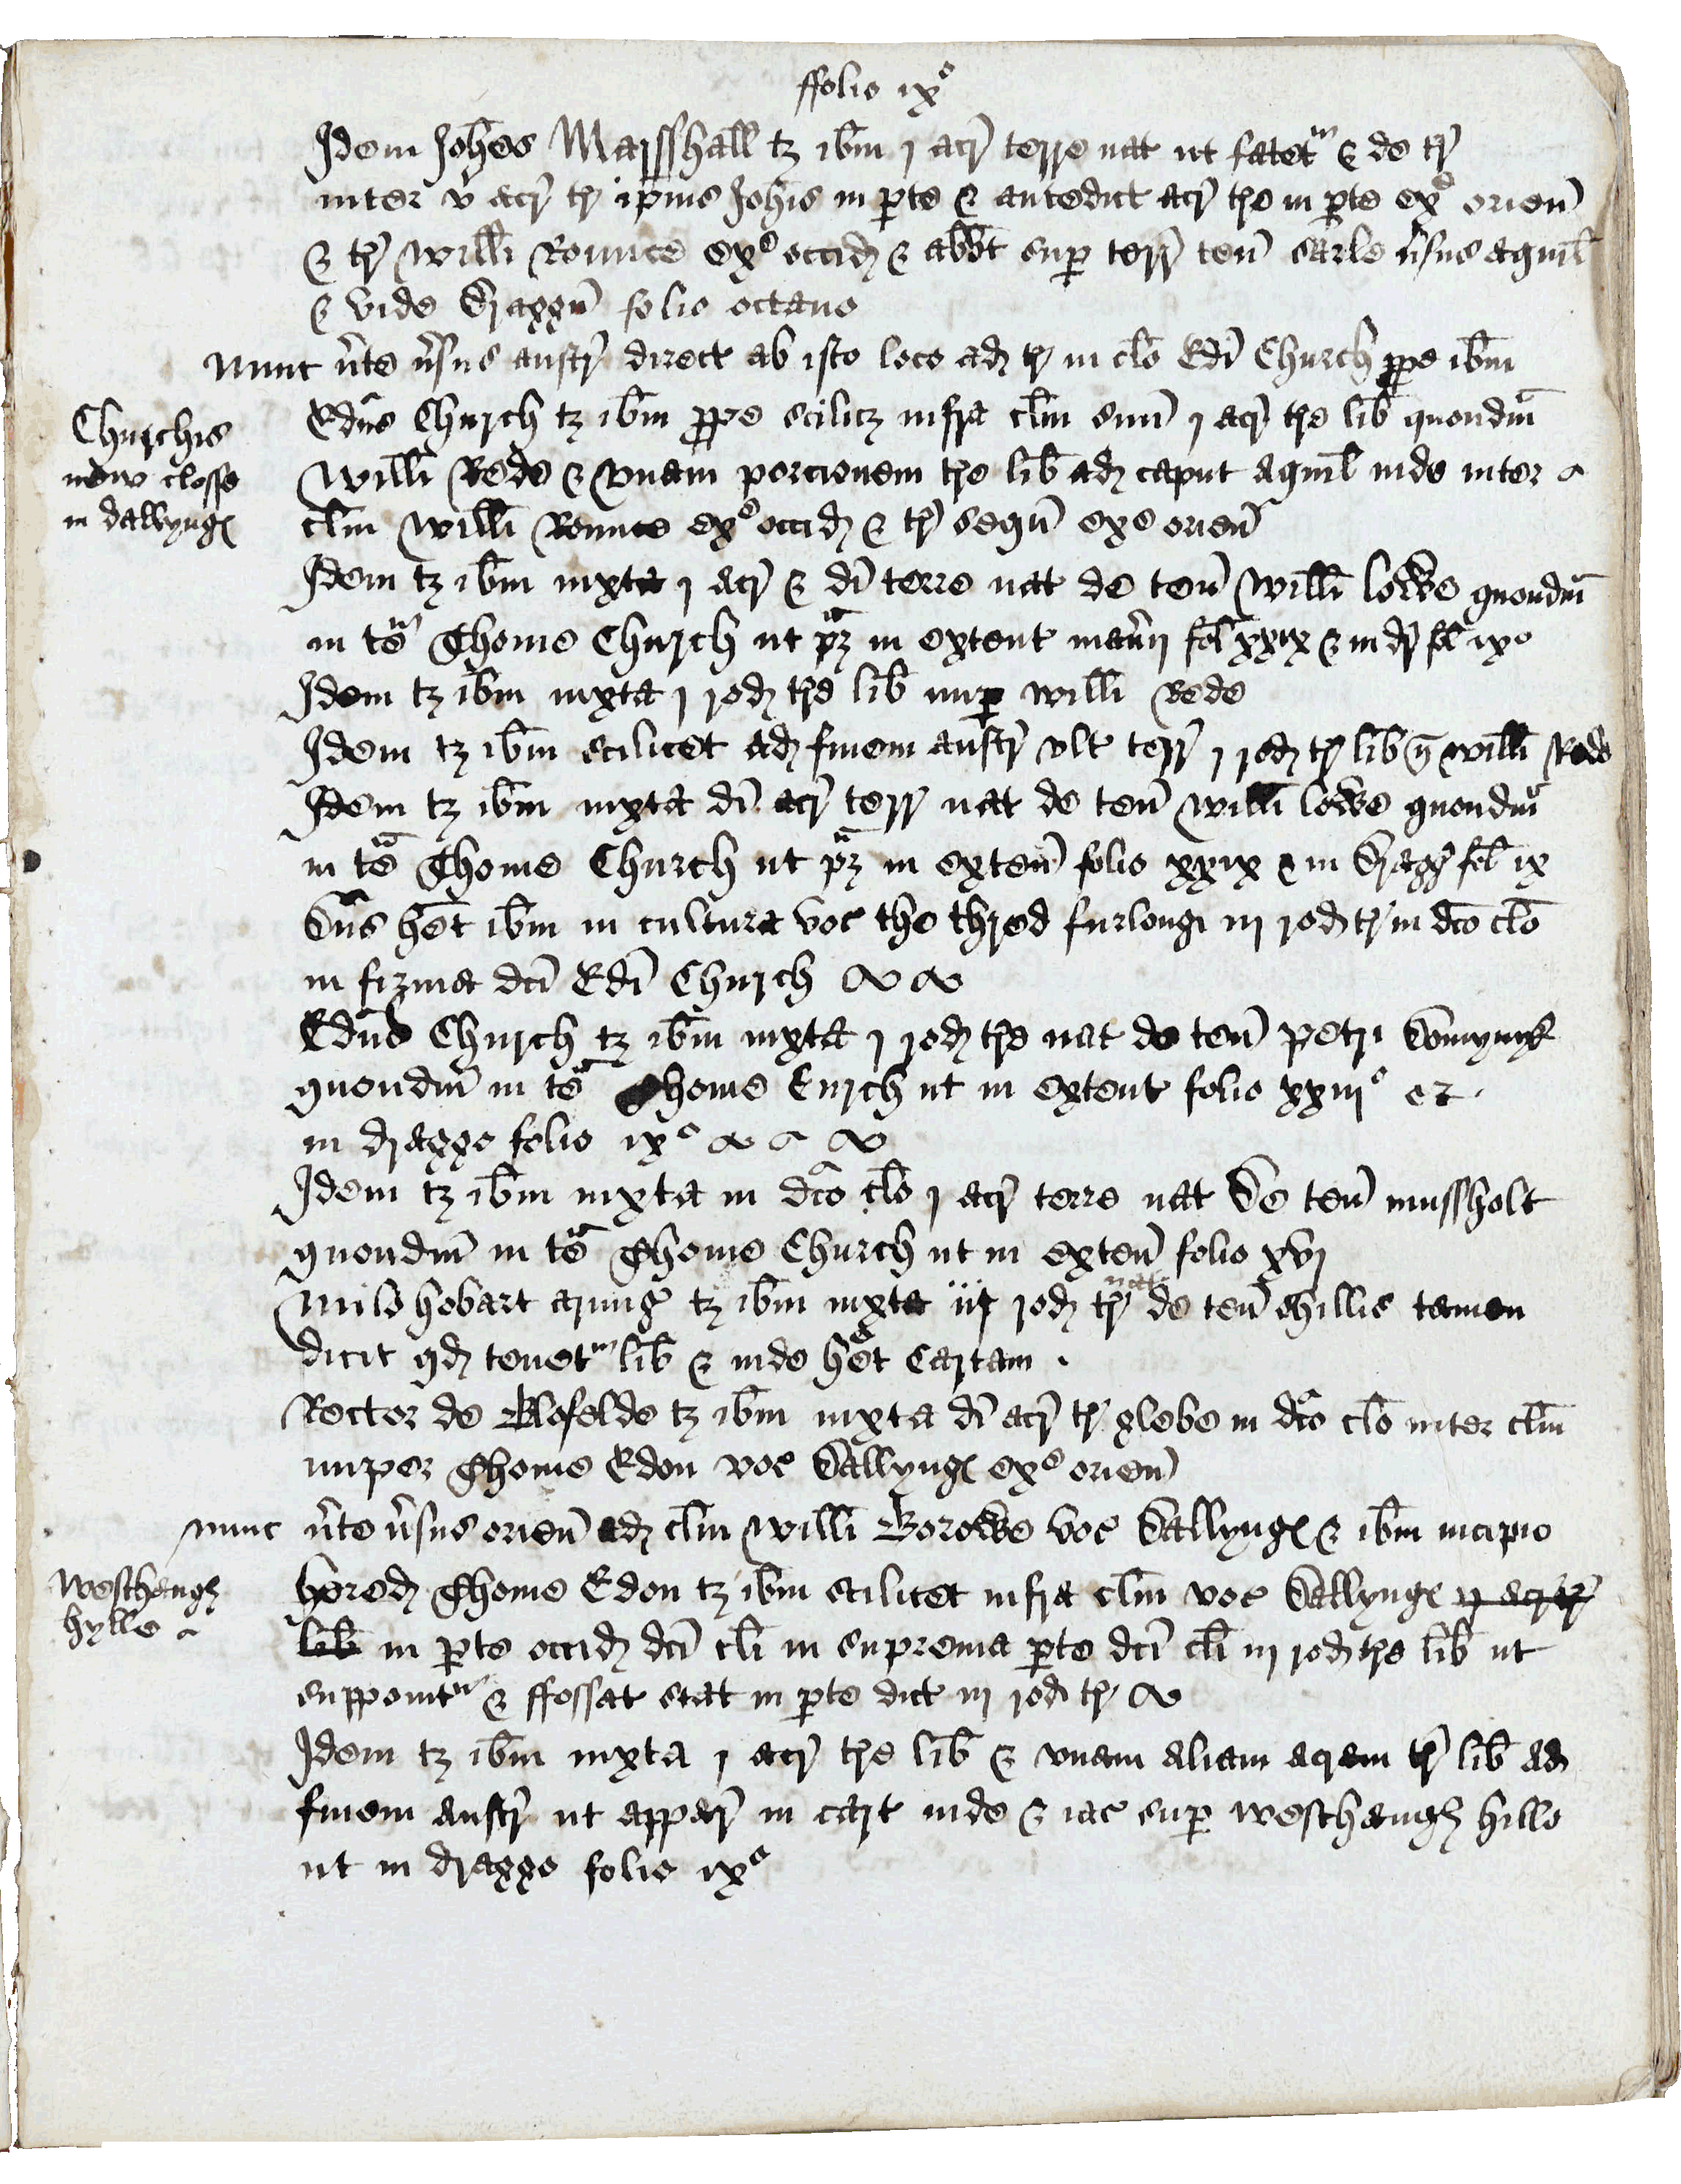 ffolio ixº
Idem Joħes Marsshall tꝫ ibm̄ j acr̄ terre nat ut fatetur & de tr̄
inter v acr̄ tr̄ ip̄ius Joħis in ꝑte & antedict acr̄ tr̄e in ꝑte exº orien̄
& tr̄ Willi Rounce exº occid̄ & abbt̄ suꝑ terr̄ ten̄ Sarle v̄sus aquil̄
& vide Draggū folio octauo
Nunc v̄te v̄sus austr̄ direct ab isto loco ad tr̄ in clo̅ Edi̅ Church ꝓpe ibm̄
Churchis
new closse
in dallyngꝭ
Edūs Church tꝫ ibm̄ ꝓpe scilicꝫ infra clm̄ suū j acr̄ tr̄e lib̄ quondm̄
Willi Rede & vnam porcionem tr̄e lib̄ ad caput aquil̄ inde inter
clm̄ Willi Rounce exº occid̄ & tr̄ seqū exº orien̄
Idem tꝫ ibm̄ iuxta j acr̄ & di̅ terre nat de ten̄ Willi Locke quondm̄
in te̅ Thome Church ut pꝫ in extent man̄ij fol̄ xxix & in dr̄ fol̄ ixº
Idem tꝫ ibm̄ iuxta j rod̄ tr̄e lib̄ nuꝑ Willi Rede
Idem tꝫ ibm̄ scilicet ad finem austr̄ vlt terr̄ j rod̄ tr̄ lib̄ q̄ Willi Rede
Idem tꝫ ibm̄ iuxta di̅ acr̄ terr̄ nat de ten̄ Willi Locke quondm̄
in te̅ Thome Church ut pꝫ in exten̄ folio xxix & in Dragḡ fol̄ ix
Dn̄s het̄ ibm̄ in cultura voc the thred furlongꝭ iij rod̄ tr̄ in dc̄o clo̅
in firma dc̄i Edi̅ Church
Edūs Church tꝫ ibm̄ iuxta j rod̄ tr̄e nat de ten̄ Petri Domynyk
quondm̄ in te̅ Thome Curch ut in extent folio xxiijº et
in dragge folio ixº
Idem tꝫ ibm̄ iuxta in dc̄o clo̅ j acr̄ terre nat de ten̄ Mussholt
quondm̄ in te̅ Thome Church ut in exten̄ folio xvj
Milo Hobart armiḡ tꝫ ibm̄ iuxta iij rod̄ tr̄ nat de ten̄ Hillis tamen
dicit qd̄ tenetur lib̄ & inde het̄ Cartam .
Rector de Blofelde tꝫ ibm̄ iuxta di̅ acr̄ tr̄ glebe in dc̄o clo̅ inter clm̄
nuper Thome Edon voc Dallyngꝭ exº orien̄
nunc v̄te v̄sus orien̄ ad clm̄ Willi Borowe voc Dallyngꝭ & ibm̄ incipio
Westhaugh
hylle
hered̄ Thome Edon tꝫ ibm̄ scilicet infra clm̄ voc Dallyngꝭ ij acr̄ tr̄
lib̄ in ꝑte occid̄ dc̄i cli̅ in suprema ꝑte dc̄i cli̅ iij rod̄ tr̄e lib̄ ut
supponitur & ffossat stat in ꝑte dict iij rod̄ tr̄
Idem tꝫ ibm̄ iuxta j acr̄ tr̄e lib̄ & vnam aliam acram tr̄ lib̄ ad
finem austr̄ ut appar̄ in cart inde & iac suꝑ Westhaugh hille
ut in dragge folio ixº